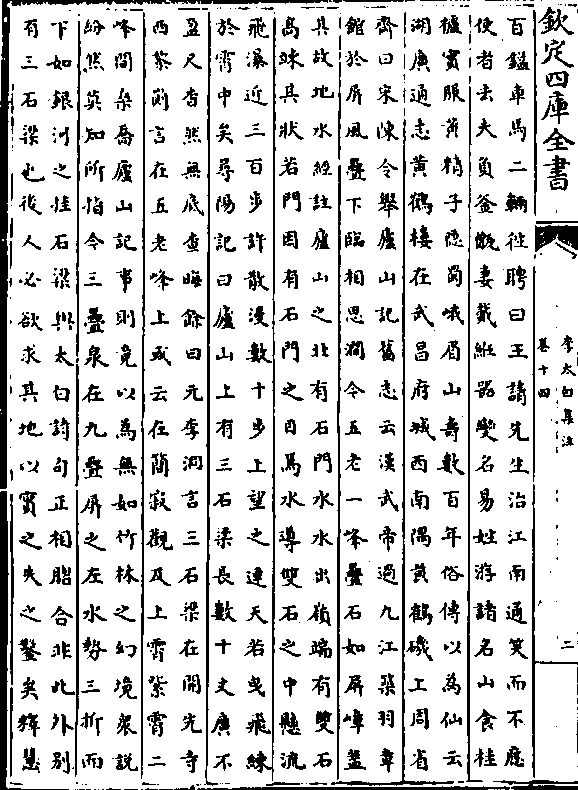 欽定四庫全書
李太白集注
卷十四
二
百鎰車馬二輛徃聘曰王請先生治江南通笑而不應
使者去夫負釜甑妻戴絍器變名易姓游諸名山食桂
櫨實服黃精子隱蜀峨眉山壽數百年俗傳以為仙云
湖廣通志黃鶴樓在武昌府城西南隅黃鶴磯上周省
齊曰宋陳令舉廬山記舊志云漢武帝過九江築羽章
館於屏風疊下臨相思澗今五老一峰疊石如屏嶂蓋
其故地水經註廬山之北有石門水水出嶺端有雙石
高竦其狀若門因有石門之目焉水導雙石之中懸流
飛瀑近三百步許散漫數十步上望之連天若曳飛練
於霄中矣尋陽記曰廬山上有三石梁長數十丈廣不
盈尺杳然無底查晦餘曰元李泂言三石梁在開先寺
西黎崱言在五老峰上或云在簡寂觀及上霄紫霄二
峰間桑喬廬山記事則竟以為無如竹林之幻境衆說
紛然莫知所指今三疊泉在九疊屏之左水勢三折而
下如銀河之挂石梁與太白詩句正相脗合非此外別
有三石梁也後人必欲求其地以實之失之鑿矣釋慧